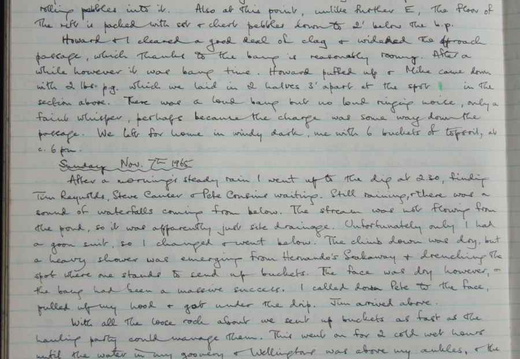 rolling pebbles into it. Also at this point, unlike further E, the floor of
the rift is packed with soil & chert pebbles down to 2' below the b.p.
Howard & I cleared a good deal of clay & widened the approach
passage, which thanks to the bang is reasonably roomy. After a
while however it was bang time. Howard puffed up & Mike came down
with 2 lbs. p.g. which we laid in 2 halves 3' apart at the spot in the
section above. There was a loud bang but no loud ringing noise, only a
faint whisper, perhaps because the charge was some way down the
passage. We left for home in windy dark, me with 6 buckets of topsoil, at
c. 6 pm.
Sunday Nov. 7th 1965
After a morning's steady rain I went up to the dig at 2.30, finding
Tim Reynolds, Steve & Pete Cousins waiting. Still raining, & there was a
sound of waterfalls coming from below. The stream was not flowing from
the pond, so it was apparently just side drainage. Unfortunately only I had
a goon suit, so I changed & went below. The climb down was dry, but
a heavy shower was emerging from Hernando's & drenching the
spot where one stands to send up buckets. The face was dry however, –
the bang had been a massive success. I called down Pete to the face,
pulled up my hood & got under the drip. Jim arrived above.
With all the loose rock about we sent up buckets as fast as the
hauling party could manage them. This went on for 2 cold wet hours
until the water in my goonery & Wellingtons was above my ankles, & the